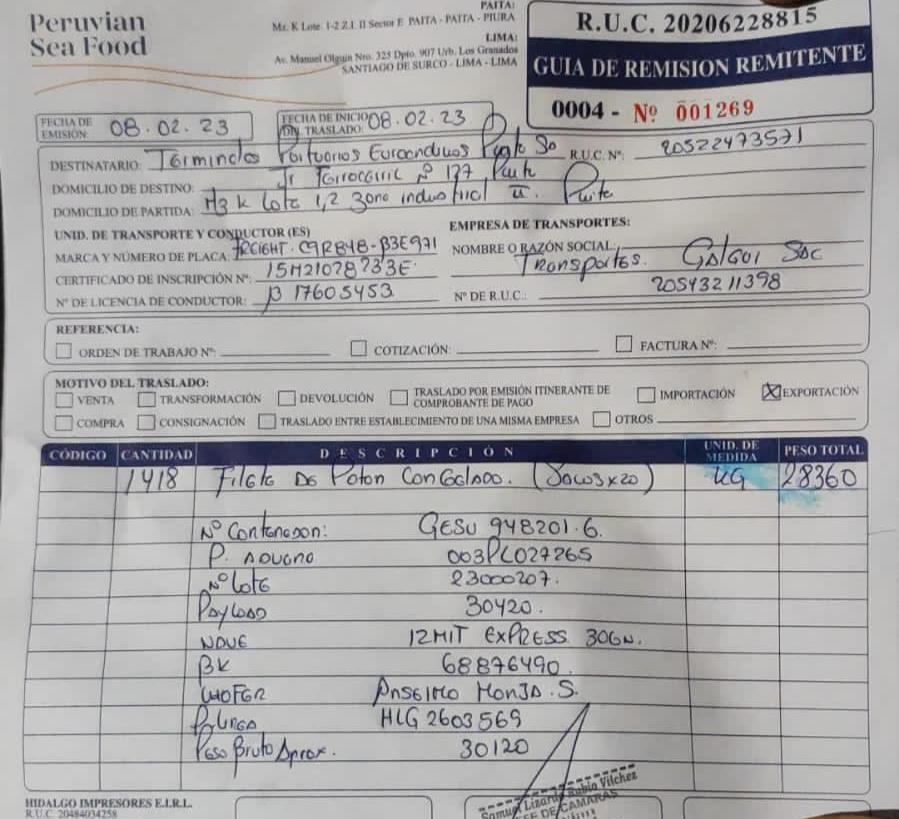 Peruvian
Sea Food
PAITA:
Mz. K Lote. 1-2 Z.I. II Sector E PAITA - PAITA - PIURA
LIMA:
Av. Manuel Olguin Nro. 325 Dpto. 907 Urb. Los Granados
SANTIAGO DE SURCO - LIMA - LIMA
R.U.C. 20206228815
GUIA DE REMISION REMITENTE
0004 - Nº 001269
FECHA DE EMISIÓN: 08.02.23
FECHA DE INICIO DN TRASLADO: 08.02.23
DESTINATARIO: Terminales Portuarios Euroandinos R.U.C. N°: 20522473571
DOMICILIO DE DESTINO: Jr Ferrocarril Nº 127, Paita
DOMICILIO DE PARTIDA: Mz K Lote 1,2 Zona industrial II. Paita
UNID. DE TRANSPORTE Y CONDUCTOR (ES)
MARCA Y NÚMERO DE PLACA: FREIGHT. C9R848-B3E971
CERTIFICADO DE INSCRIPCIÓN Nº: 15M21078733E
Nº DE LICENCIA DE CONDUCTOR: B 17605453
EMPRESA DE TRANSPORTES:
NOMBRE O RAZÓN SOCIAL: Transportes. Galgui SAC
Nº DE R.U.C.: 20543211398
REFERENCIA:
ORDEN DE TRABAJO Nº: COTIZACIÓN: FACTURA Nº:
MOTIVO DEL TRASLADO:
VENTA TRANSFORMACIÓN DEVOLUCIÓN TRASLADO POR EMISIÓN ITINERANTE DE COMPROBANTE DE PAGO IMPORTACIÓN EXPORTACIÓN
COMPRA CONSIGNACIÓN TRASLADO ENTRE ESTABLECIMIENTO DE UNA MISMA EMPRESA OTROS
CÓDIGO CANTIDAD DESCRIPCIÓN UNID. DE MEDIDA PESO TOTAL
1418 Filete De Poton Congelado. (Sacos x 20) KG 28360
Nº Contenedor: GESU 948201.6
P. ADUANA 003PL027265
Nº Lote 23000207.
PAYLOAD 30420.
NAVE IZMIT EXPRESS 306N.
BK 68876490.
CHOFER ANSELMO MONJA.S.
HLG 2603569
Peso Bruto Aprox. 30120
HIDALGO IMPRESORES E.I.R.L.
R.U.C. 20484034258
Samuel Lizardo Rubio Vilchez
JEFE DE CAMARAS